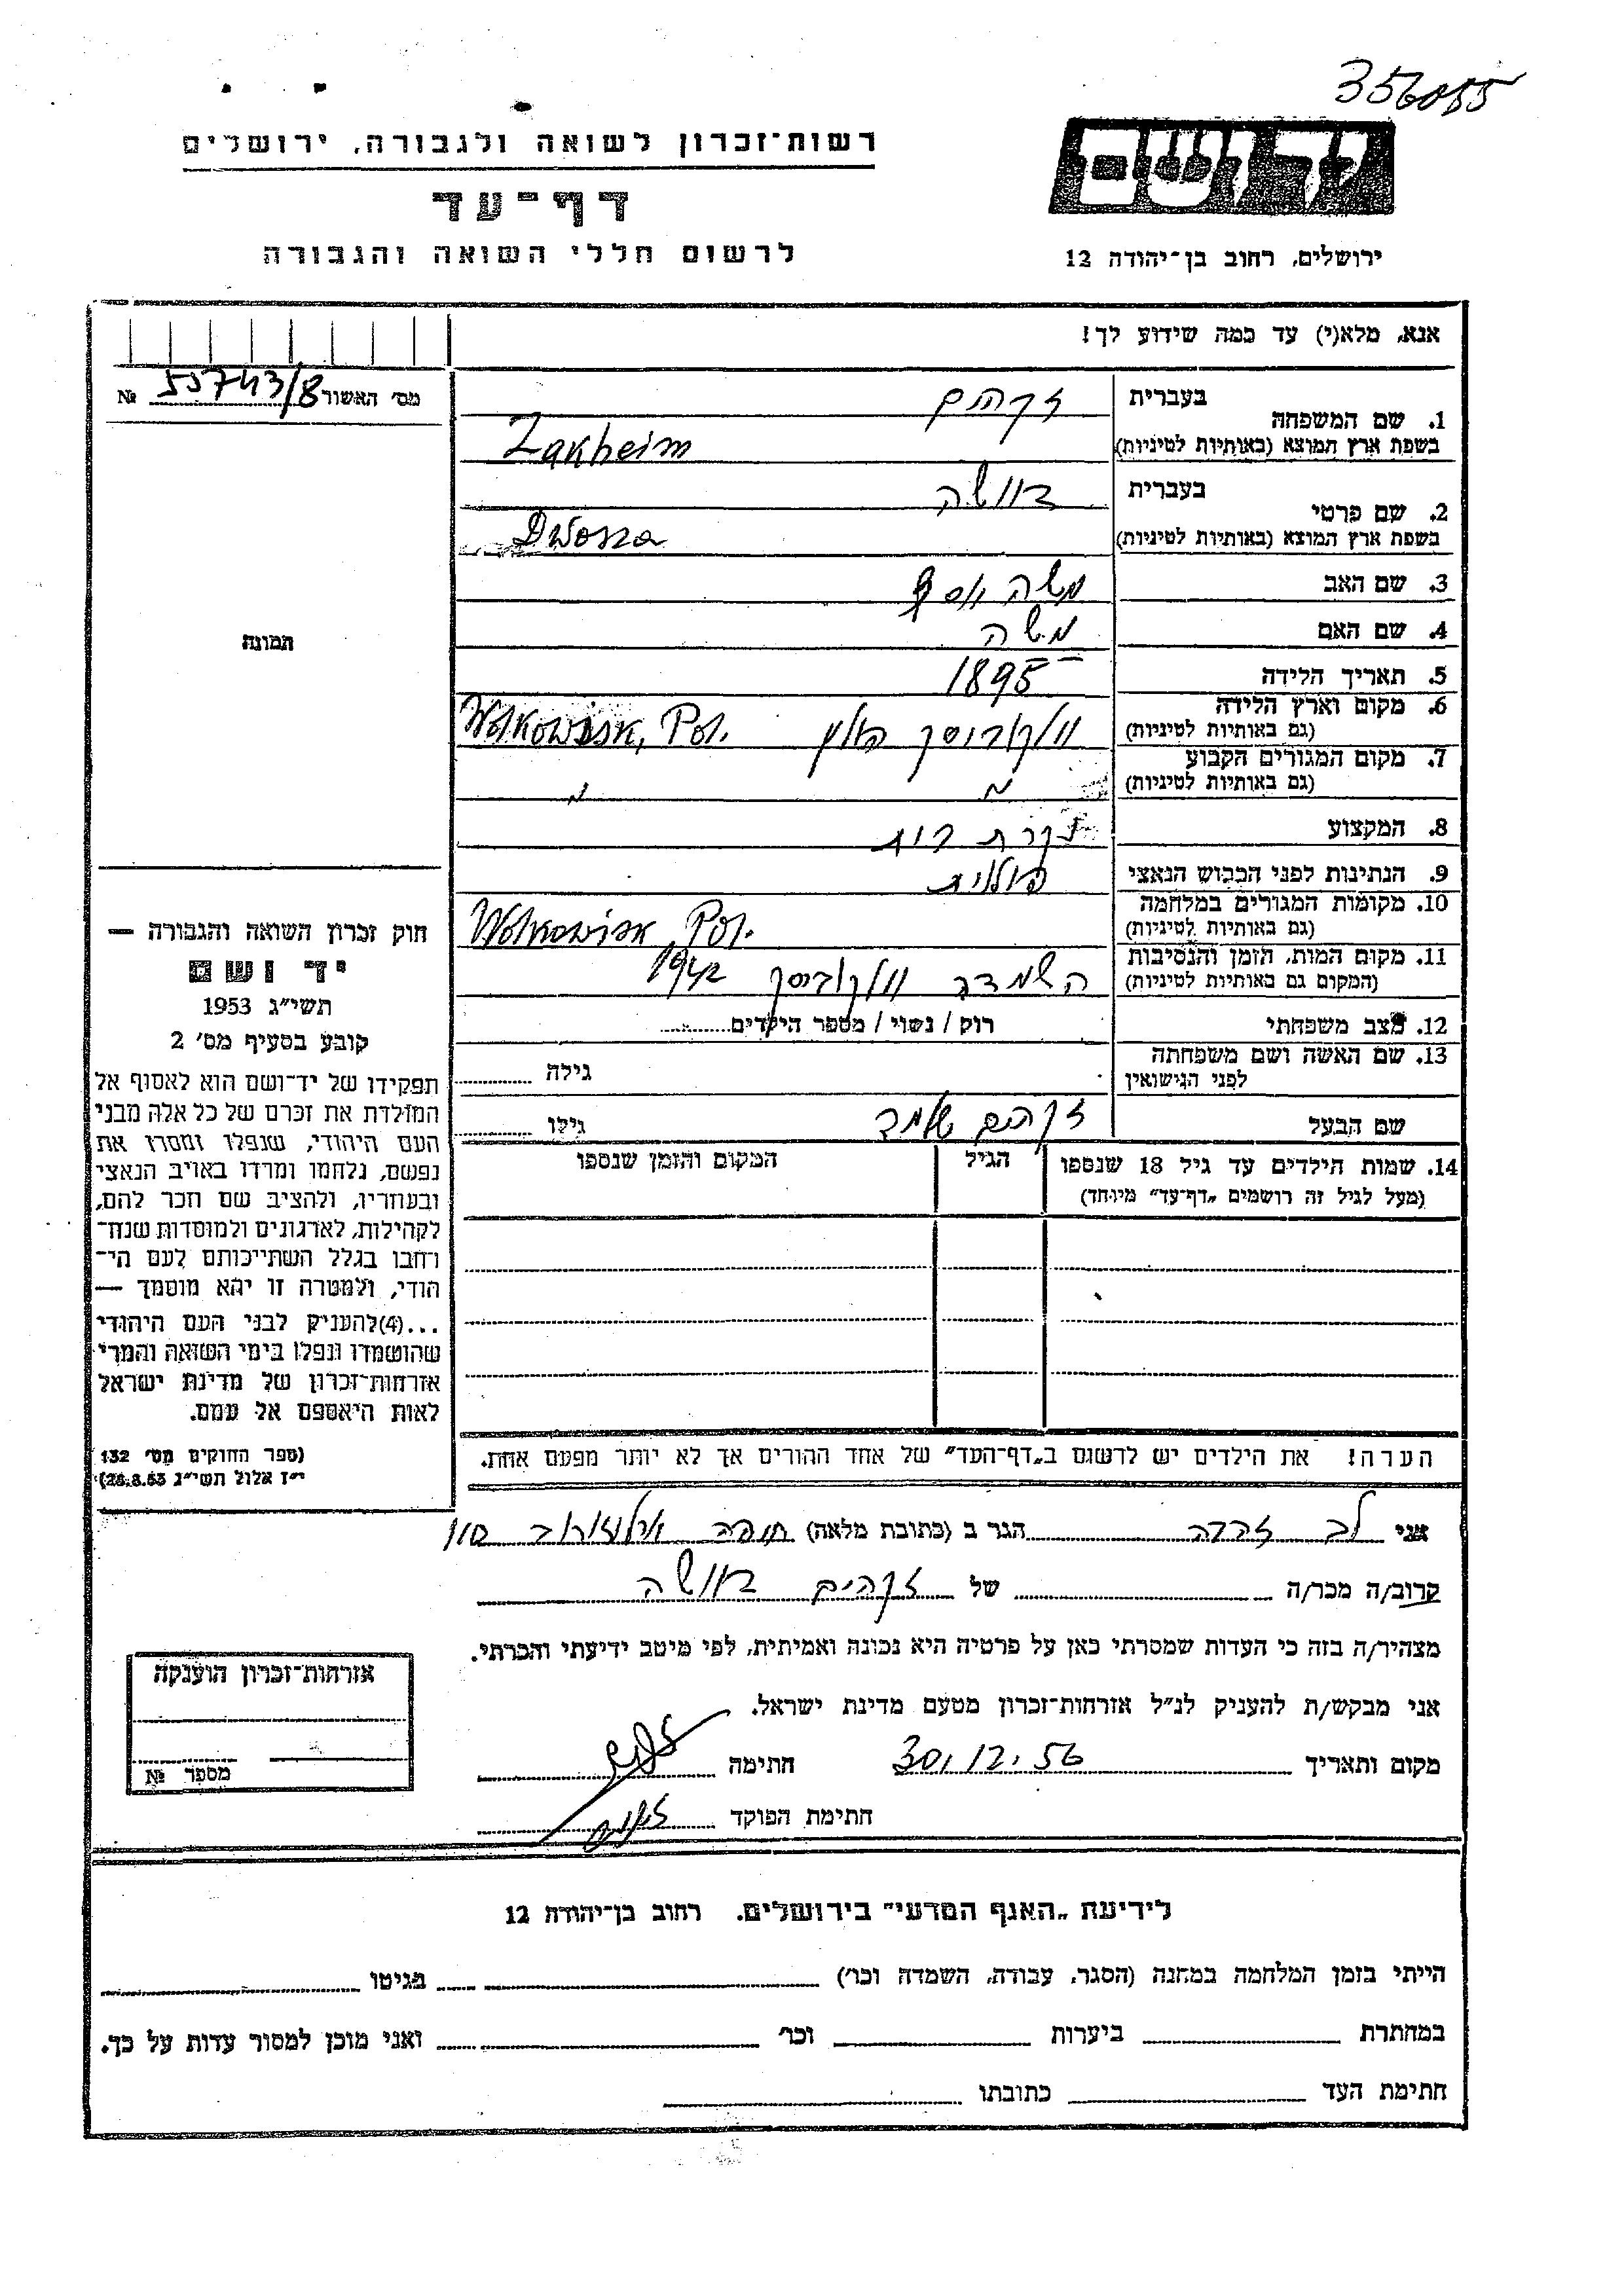 רשות־זכרון לשואה ולגבורה, ירושלים
דף־עד
לרשום חללי השואה והגבורה
יד ושם
ירושלים, רחוב בן־יהודה 12
אנא, מלא(י) עד כמה שידוע לך!
מס׳ האשור 55743/8 №
1. שם המשפחה
בעברית זקהים
בשפת ארץ המוצא (באותיות לטיניות) Zakheim
2. שם פרטי
בעברית דוושה
בשפת ארץ המוצא (באותיות לטיניות) Dwosza
3. שם האב משה יוסף
4. שם האם
5. תאריך הלידה 1895
6. מקום וארץ הלידה
(גם באותיות לטיניות) וולקוביסק פולין Wolkowisk, Pol.
7. מקום המגורים הקבוע
(גם באותיות לטיניות)
8. המקצוע עקרת בית
9. הנתינות לפני הכבוש הנאצי פולנית
10. מקומות המגורים במלחמה
(גם באותיות לטיניות) Wolkowisk, Pol.
11. מקום המות, הזמן והנסיבות
(המקום גם באותיות לטיניות) השמדה וולקוביסק 1942
12. מצב משפחתי רוק / נשוי / מספר הילדים
13. שם האשה ושם משפחתה
לפני הנישואין גילה
שם הבעל זקהים גילו
14. שמות הילדים עד גיל 18 שנספו הגיל המקום והזמן שנספו
(מעל לגיל זה רושמים „דף־עד” מיוחד)
הערה! את הילדים יש לרשום ב„דף־העד” של אחד ההורים אך לא יותר מפעם אחת.
תמונה
חוק זכרון השואה והגבורה —
יד ושם
תשי״ג 1953
קובע בסעיף מס׳ 2
תפקידו של יד־ושם הוא לאסוף אל
המולדת את זכרם של כל אלה מבני
העם היהודי, שנפלו ומסרו את
נפשם, נלחמו ומרדו באויב הנאצי
ובעוזריו, ולהציב שם וזכר להם,
לקהילות, לארגונים ולמוסדות שנח־
רבו בגלל השתייכותם לעם הי־
הודי, ולמטרה זו יהא מוסמך —
...(4) להעניק לבני העם היהודי
שהושמדו ונפלו בימי השואה והמרי
אזרחות־זכרון של מדינת ישראל
לאות היאספם אל עמם.
(ספר החוקים מס׳ 132
י״ז אלול תשי״ג 28.8.53)
אני לב הגר ב (כתובת מלאה) חיפה
קרוב/ה מכר/ה של זקהים דוושה
מצהיר/ה בזה כי העדות שמסרתי כאן על פרטיה היא נכונה ואמיתית, לפי מיטב ידיעתי והכרתי.
אני מבקש/ת להעניק לנ״ל אזרחות־זכרון מטעם מדינת ישראל.
מקום ותאריך 30.12.56 חתימה
חתימת הפוקד
אזרחות־זכרון הוענקה
מספר №
לידיעת „האגף המדעי” בירושלים. רחוב בן־יהודה 12
הייתי בזמן המלחמה במחנה (הסגר, עבודה, השמדה וכו׳) בגיטו
במחתרת ביערות וכו׳ ואני מוכן למסור עדות על כך.
חתימת העד כתובתו